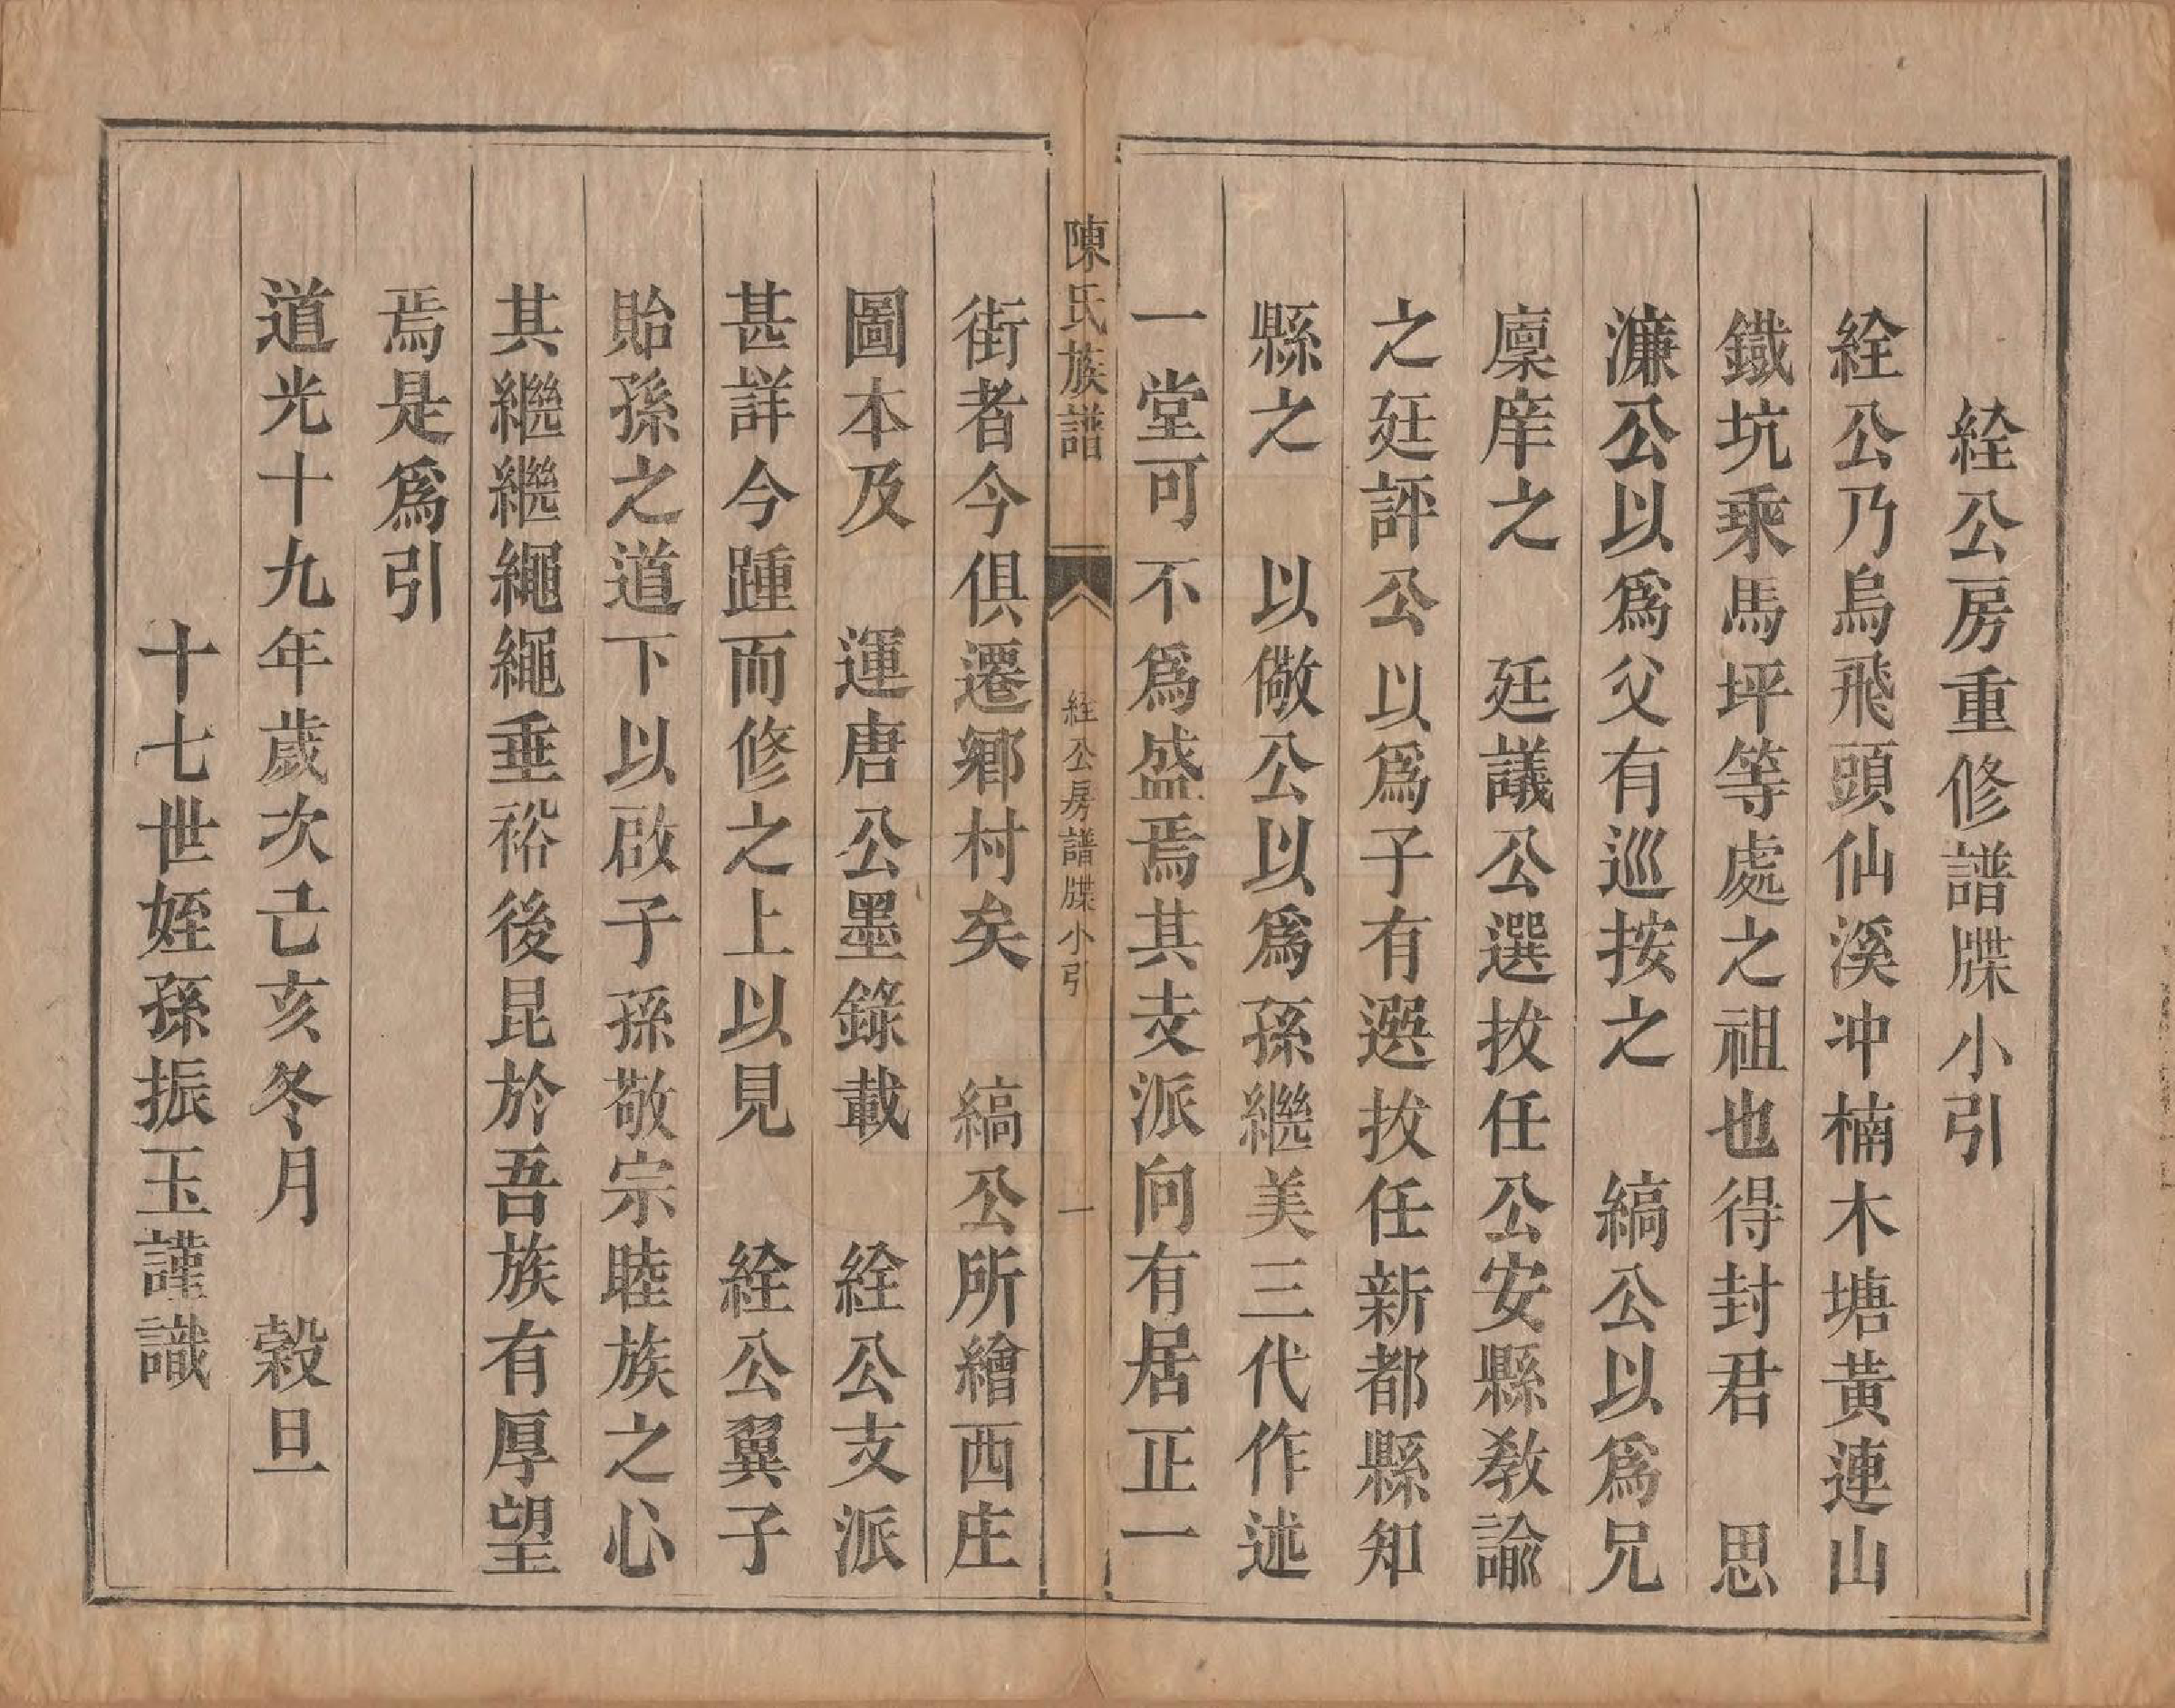 絟公房重修譜牒小引
絟公乃烏飛頭仙溪冲楠木塘黃連山
鐵坑乘馬坪等處之祖也得封君　思
濂公以爲父有巡按之　縞公以爲兄
廩庠之　廷議公選拔任公安縣教諭
之廷評公以爲子有選拔任新都縣知
縣之　以儆公以爲孫繼美三代作述
一堂可不爲盛焉其支派向有居正一
陳氏族譜　絟公房譜牒小引　一
街者今俱遷鄉村矣　縞公所繪西庄
圖本及　運唐公墨錄載　絟公支派
甚詳今踵而修之上以見　絟公翼子
貽孫之道下以啟子孫敬宗睦族之心
其繼繼繩繩垂裕後昆於吾族有厚望
焉是爲引
道光十九年歲次己亥冬月　穀旦
十七世姪孫振玉謹識